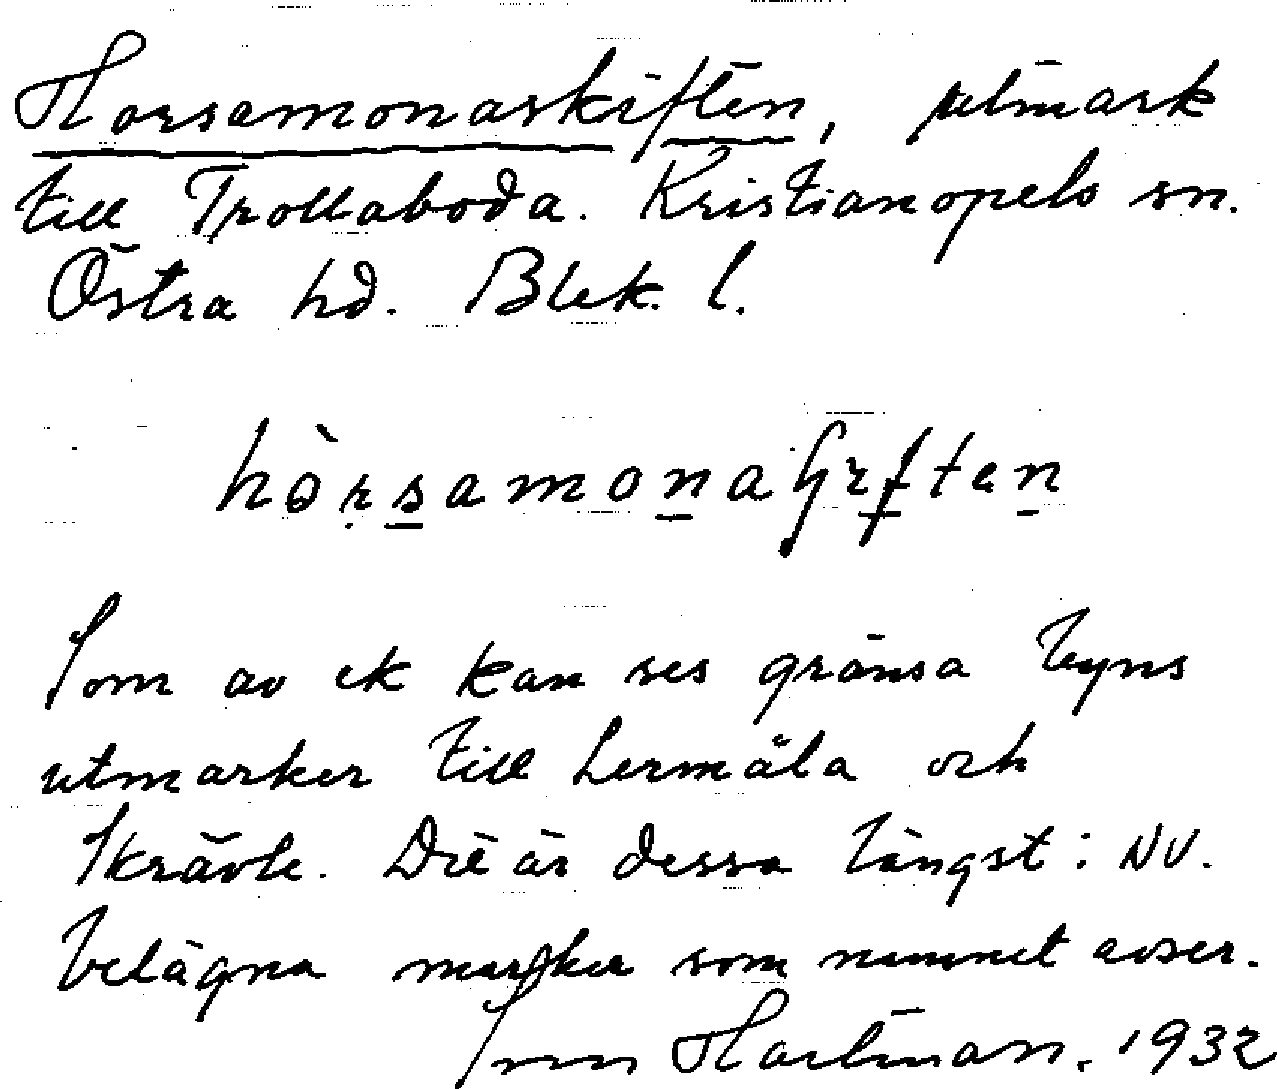 Horsamonaskiften, utmark
till Trollaboda. Kristianopels sn.
Östra hd. Blek. l.
Som av ek kan ses gränsa byns
utmarker till Lermåla och
Skrävle. Det är dessa längst i NV.
belägna marker som namnet avser.
Hartman. 1932